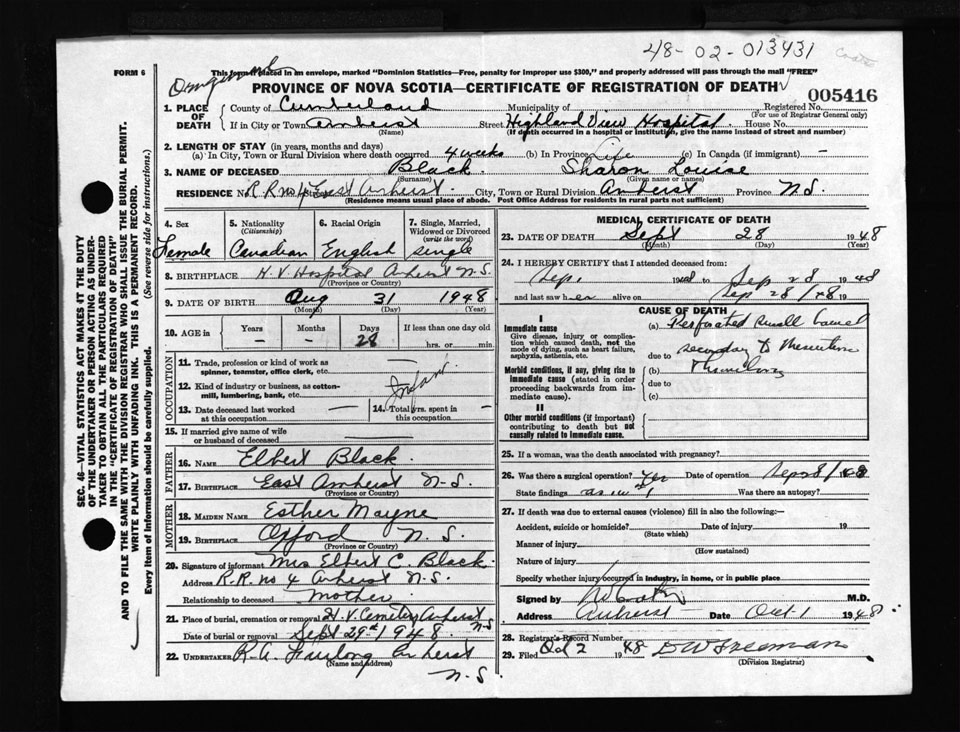 48-02-013431
FORM 6
This form if placed in an envelope, marked "Dominion Statistics—Free, penalty for improper use $300," and properly addressed will pass through the mail "FREE"
PROVINCE OF NOVA SCOTIA—CERTIFICATE OF REGISTRATION OF DEATH
005416
1. PLACE OF DEATH
County of Cumberland Municipality of Registered No.
(For use of Registrar General only)
If in City or Town Amherst Street Highland View Hospital House No.
(Name) (If death occurred in a hospital or institution, give the name instead of street and number)
2. LENGTH OF STAY (in years, months and days)
(a) In City, Town or Rural Division where death occurred 4 weeks (b) In Province Life (c) In Canada (if immigrant) —
3. NAME OF DECEASED Black Sharon Louise
(Surname) (Given name or names)
RESIDENCE No. R.R. no 4 East Amherst City, Town or Rural Division Amherst Province N.S.
(Residence means usual place of abode. Post Office Address for residents in rural parts not sufficient)
4. Sex 5. Nationality 6. Racial Origin 7. Single, Married, Widowed or Divorced
(Citizenship) (write the word)
Female Canadian English single
8. BIRTHPLACE H. V. Hospital Amherst N.S.
(Province or Country)
9. DATE OF BIRTH Aug 31 1948
(Month) (Day) (Year)
10. AGE in Years Months Days If less than one day old
— — 28 hrs. or min.
OCCUPATION
11. Trade, profession or kind of work as spinner, teamster, office clerk, etc.
12. Kind of industry or business, as cotton-mill, lumbering, bank, etc. Infant
13. Date deceased last worked at this occupation
14. Total yrs. spent in this occupation
15. If married give name of wife or husband of deceased
FATHER
16. NAME Elbert Black
17. BIRTHPLACE East Amherst N.S.
(Province or Country)
MOTHER
18. MAIDEN NAME Esther Mayne
19. BIRTHPLACE Oxford N.S.
(Province or Country)
20. Signature of informant Mrs Elbert C. Black
Address R.R. no 4 Amherst N.S.
Relationship to deceased Mother
21. Place of burial, cremation or removal H. V. Cemetery Amherst N.S
Date of burial or removal Sept 29th 1948
22. UNDERTAKER R. A. Furlong Amherst
(Name and address)
N.S.
MEDICAL CERTIFICATE OF DEATH
23. DATE OF DEATH Sept 28 1948
(Month) (Day) (Year)
24. I HEREBY CERTIFY that I attended deceased from:
Sep. 19 to Sep 28 1948
and last saw her alive on Sep 28/48 19
CAUSE OF DEATH
I
Immediate cause
Give disease, injury or complication which caused death, not the mode of dying, such as heart failure, asphyxia, asthenia, etc.
(a) Perforated small bowel
due to secondary to Mesenteric
Morbid conditions, if any, giving rise to immediate cause (stated in order proceeding backwards from immediate cause).
(b) Thrombosis
due to
(c)
II
Other morbid conditions (if important) contributing to death but not causally related to immediate cause.
25. If a woman, was the death associated with pregnancy?
26. Was there a surgical operation? Yes Date of operation Sep 8/48
State findings as in 1 Was there an autopsy?
27. If death was due to external causes (violence) fill in also the following:—
Accident, suicide or homicide? Date of injury 19
(State which)
Manner of injury
(How sustained)
Nature of injury
Specify whether injury occurred in industry, in home, or in public place
Signed by M.D.
Address Amherst Date Oct 1 1948
28. Registrar's Record Number
29. Filed Oct 2 1948 B W Freeman
(Division Registrar)
SEC. 46—VITAL STATISTICS ACT MAKES IT THE DUTY
OF THE UNDERTAKER OR PERSON ACTING AS UNDER-
TAKER TO OBTAIN ALL THE PARTICULARS REQUIRED
IN THE "CERTIFICATE OF REGISTRATION OF DEATH"
AND TO FILE THE SAME WITH THE DIVISION REGISTRAR WHO SHALL ISSUE THE BURIAL PERMIT.
WRITE PLAINLY WITH UNFADING INK. THIS IS A PERMANENT RECORD.
Every item of information should be carefully supplied. (See reverse side for instructions.)